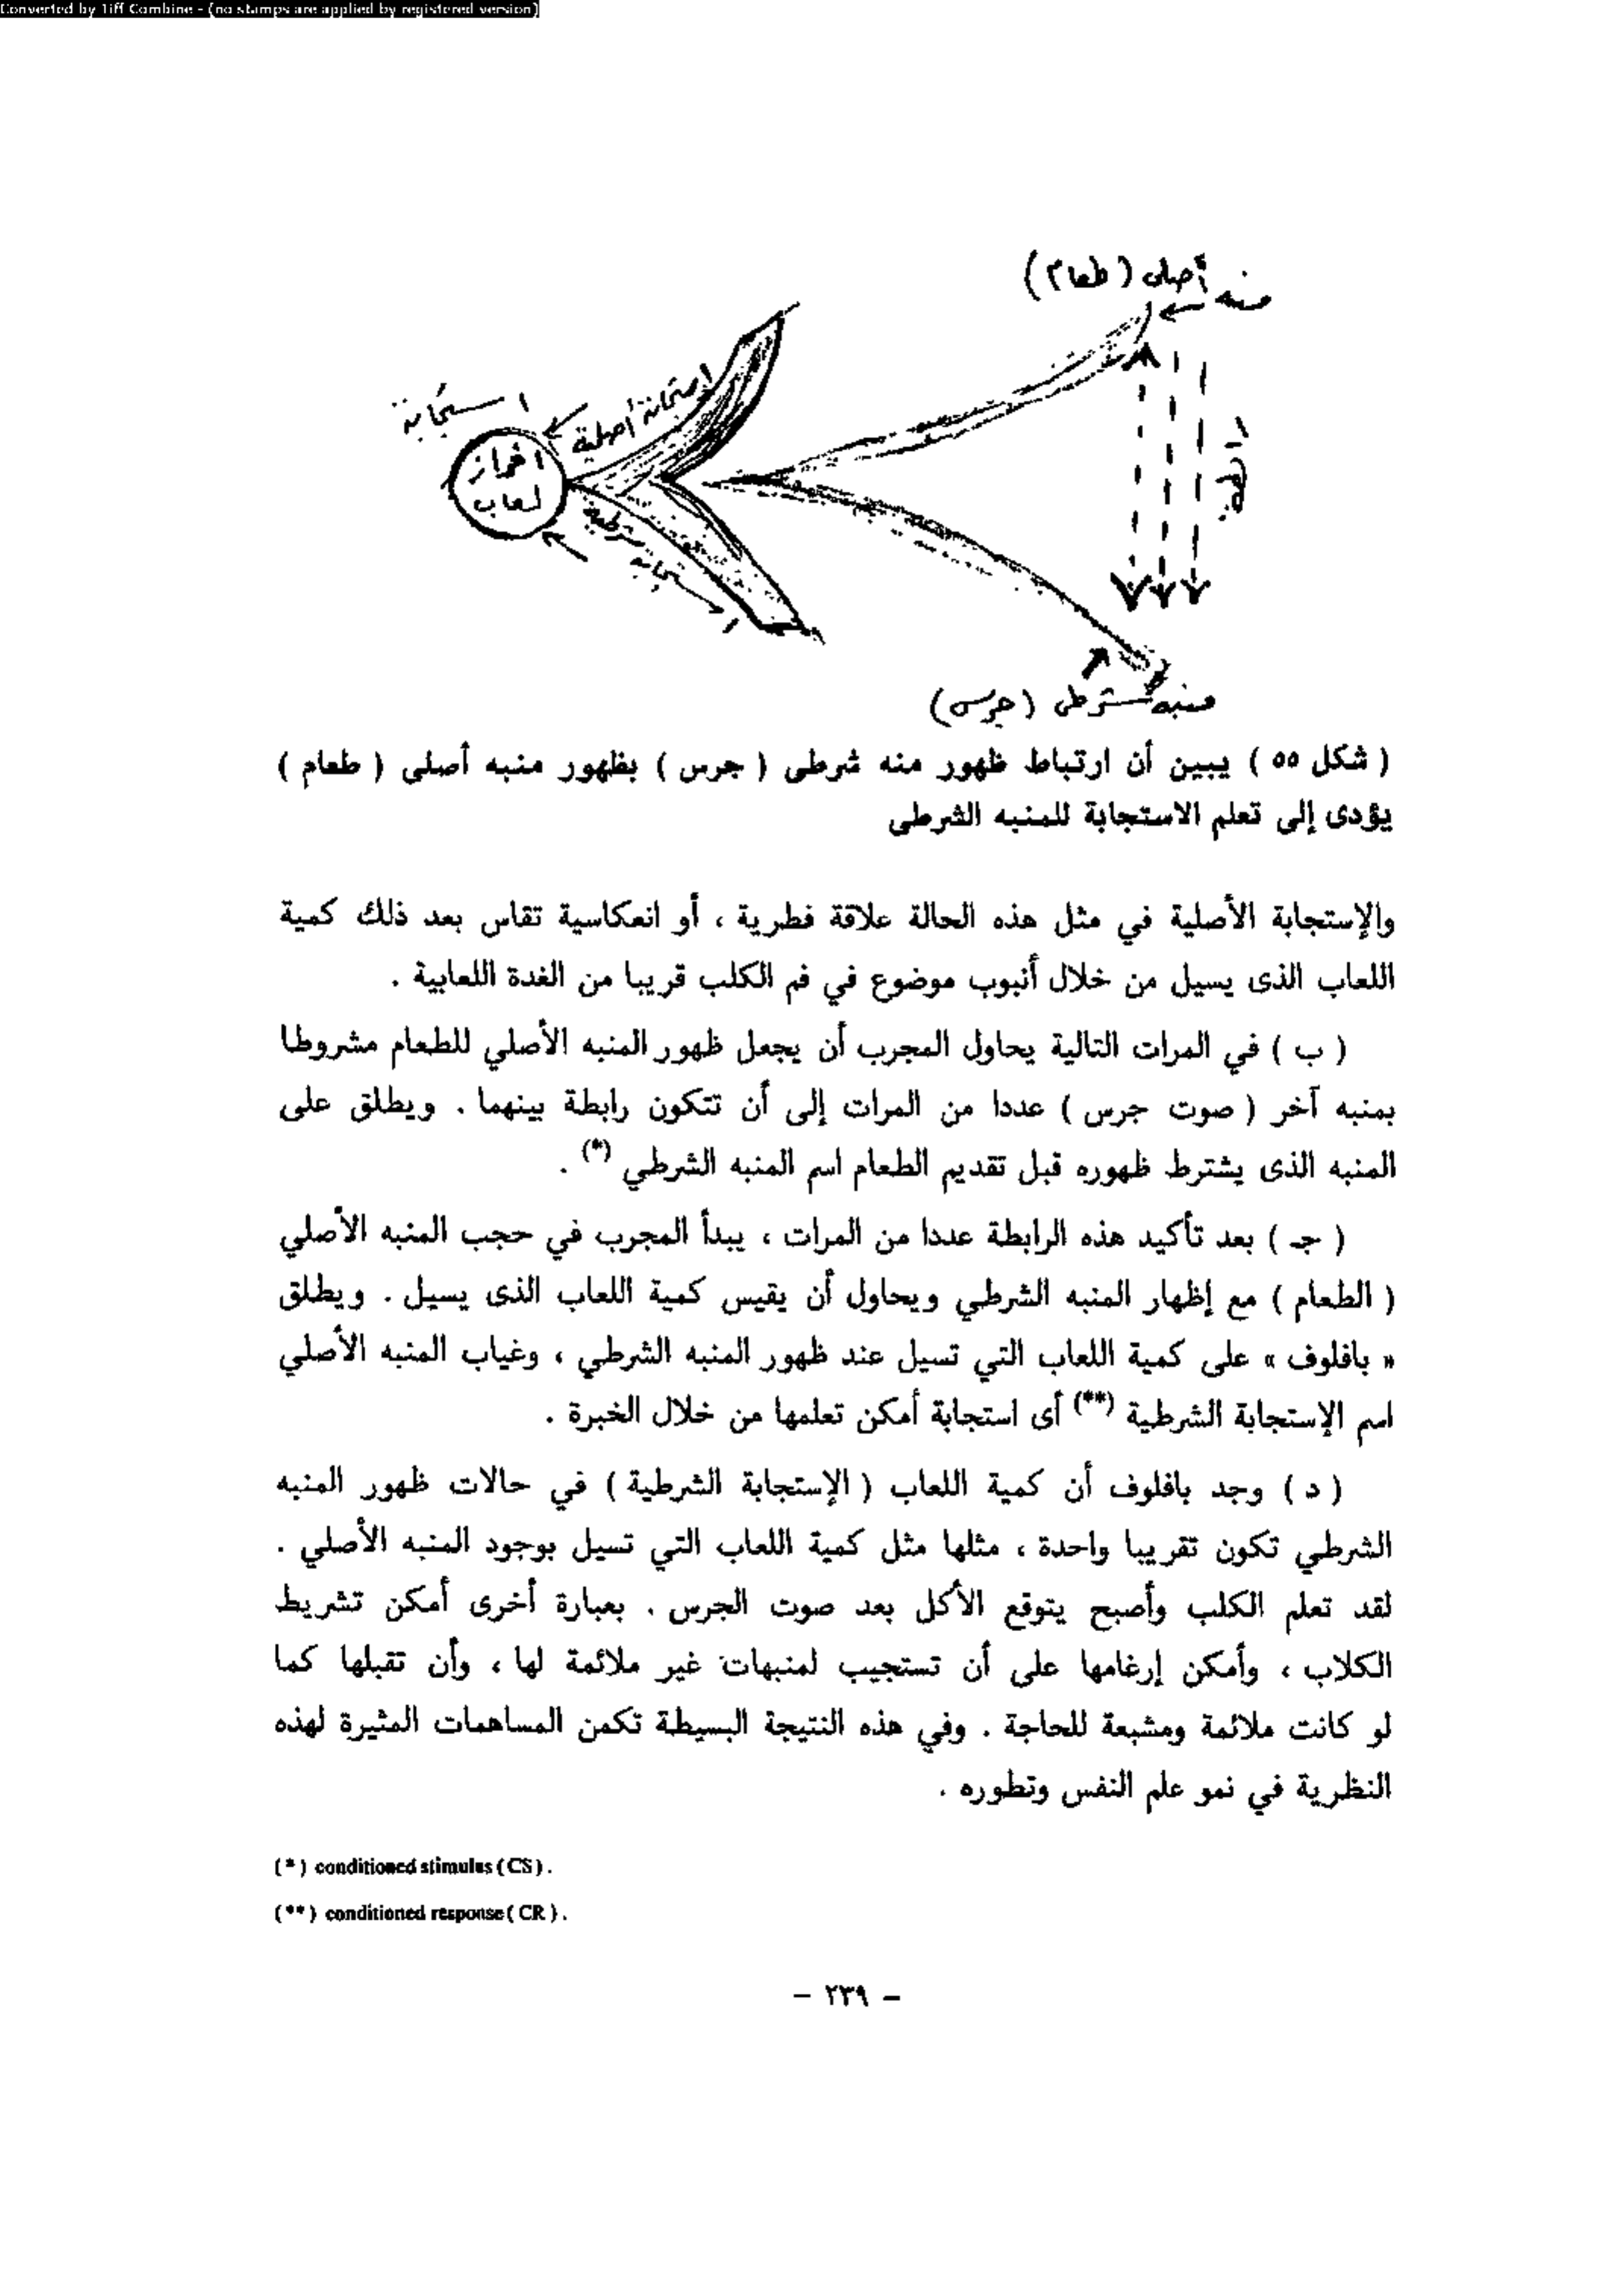 Converted by Tiff Combine - (no stamps are applied by registered version)
منبه أصلى (طعام)
استجابة أصلية
استجابة
افراز
لعاب
استجابة شرطية
منبه شرطى (جرس)
( شكل ٥٥ ) يبين أن ارتباط ظهور منه شرطى ( جرس ) بظهور منبه أصلى ( طعام )
يؤدى إلى تعلم الاستجابة للمنبه الشرطى
والإستجابة الأصلية في مثل هذه الحالة علاقة فطرية ، أو انعكاسية تقاس بعد ذلك كمية
اللعاب الذى يسيل من خلال أنبوب موضوع في فم الكلب قريبا من الغدة اللعابية .
( ب ) في المرات التالية يحاول المجرب أن يجعل ظهور المنبه الأصلي للطعام مشروطا
بمنبه آخر ( صوت جرس ) عددا من المرات إلى أن تتكون رابطة بينهما . ويطلق على
المنبه الذى يشترط ظهوره قبل تقديم الطعام اسم المنبه الشرطي (*) .
( جـ ) بعد تأكيد هذه الرابطة عددا من المرات ، يبدأ المجرب في حجب المنبه الأصلي
( الطعام ) مع إظهار المنبه الشرطي ويحاول أن يقيس كمية اللعاب الذى يسيل . ويطلق
« بافلوف » على كمية اللعاب التي تسيل عند ظهور المنبه الشرطي ، وغياب المنبه الأصلي
اسم الإستجابة الشرطية (**) أى استجابة أمكن تعلمها من خلال الخبرة .
( د ) وجد بافلوف أن كمية اللعاب ( الإستجابة الشرطية ) في حالات ظهور المنبه
الشرطي تكون تقريبا واحدة ، مثلها مثل كمية اللعاب التي تسيل بوجود المنبه الأصلي .
لقد تعلم الكلب وأصبح يتوقع الأكل بعد صوت الجرس . بعبارة أخرى أمكن تشريط
الكلاب ، وأمكن إرغامها على أن تستجيب لمنبهات غير ملائمة لها ، وأن تقبلها كما
لو كانت ملائمة ومشبعة للحاجة . وفي هذه النتيجة البسيطة تكمن المساهمات المثيرة لهذه
النظرية في نمو علم النفس وتطوره .
(*) conditioned stimulus (CS) .
(**) conditioned response ( CR ) .
– ٢٣٩ –